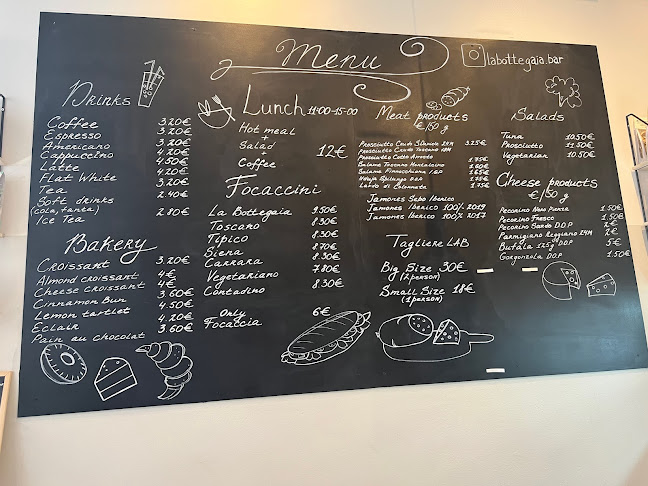 Menu
labottegaia.bar
Drinks
Coffee 3.20€
Espresso 3.20€
Americano 4.20€
Cappuccino 4.50€
Latte 4.20€
Flat White 3.20€
Tea 2.40€
Soft drinks
(cola, fanta) 2.80€
Ice Tea
Bakery
Croissant 3.20€
Almond croissant 4€
Cheese croissant 4€
Cinnamon Bun 3.60€
Lemon tartlet 4.50€
Eclair 4.20€
Pain au chocolat 3.60€
Lunch 11:00-15:00
Hot meal
+
Salad
+
Coffee
12€
Focaccini
La Bottegaia 9.50€
Toscano 8.30€
Tipico 8.30€
Siena 8.70€
Carrara 8.30€
Vegetariano 7.80€
Contadino 8.30€
Only
Focaccia 6€
Meat products
€/50 g
Prosciutto Crudo 3.25€
Prosciutto Crudo Toscano
Prosciutto Cotto Arrosto 1.75€
Salame Toscano 1.60€
Salame Finocchiona 1.65€
Nduja Spilinga 1.75€
Lardo di Colonnata 1.75€
Jamones Sebo Iberico
Jamones Iberico 100% 2019
Jamones Iberico 100% 2017
Tagliere LAB
Big Size 30€
(2 person)
Small Size 18€
(1 person)
Salads
Tuna 10.50€
Prosciutto 11.50€
Vegetarian 10.50€
Cheese products
€/50 g
Pecorino 1.50€
Pecorino Fresco 1.50€
Pecorino Sardo D.O.P 2€
Parmigiano Reggiano 24M 4€
Bufala 125g D.O.P 5€
Gorgonzola D.O.P 1.50€